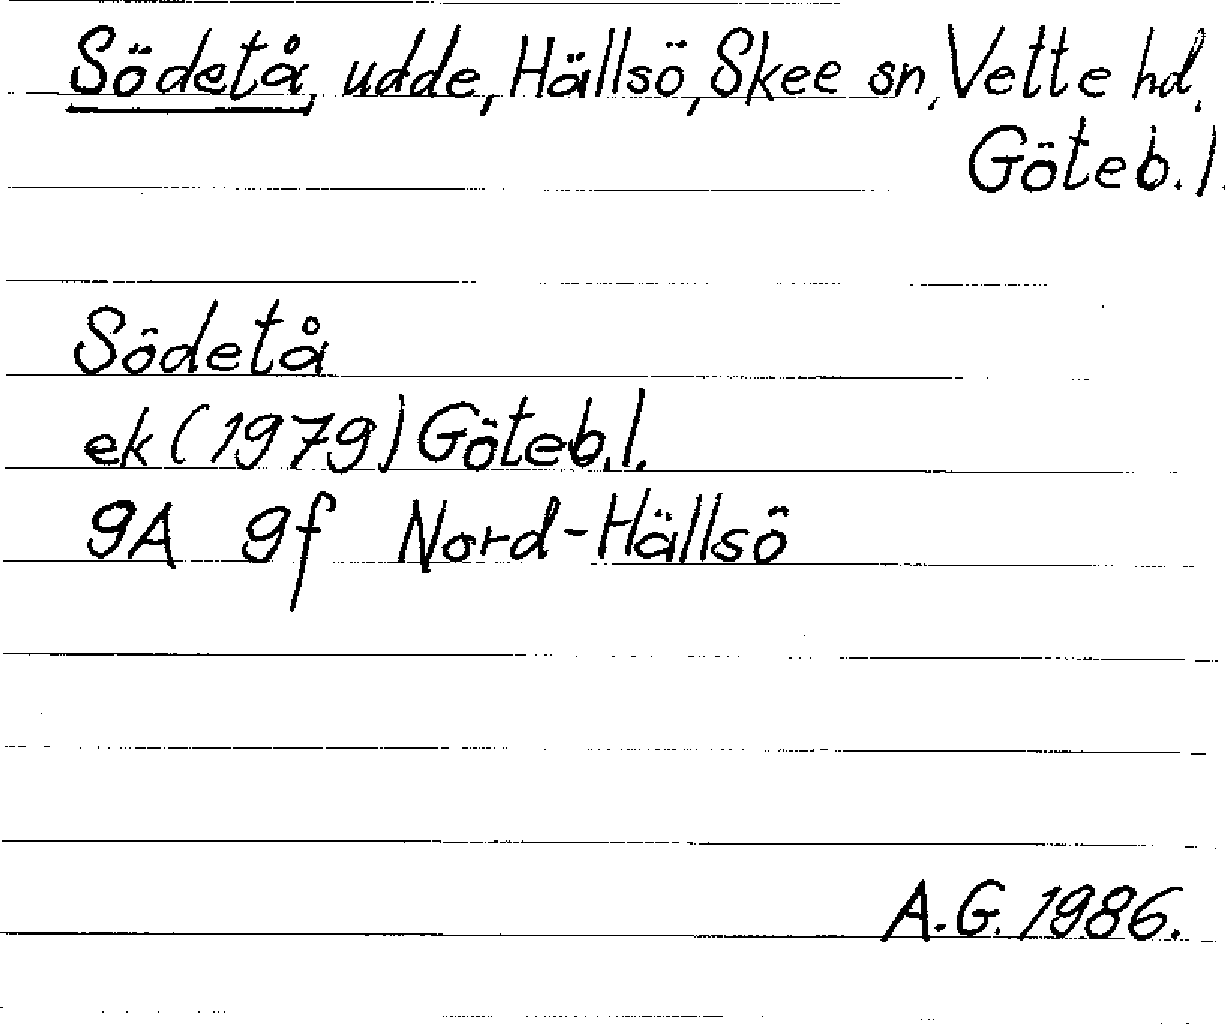 Södetå, udde, Hällsö, Skee sn, Vette hd,
Göteb. l.
Södetå
ek (1979) Göteb. l.
9A 9f Nord-Hällsö
A.G. 1986.